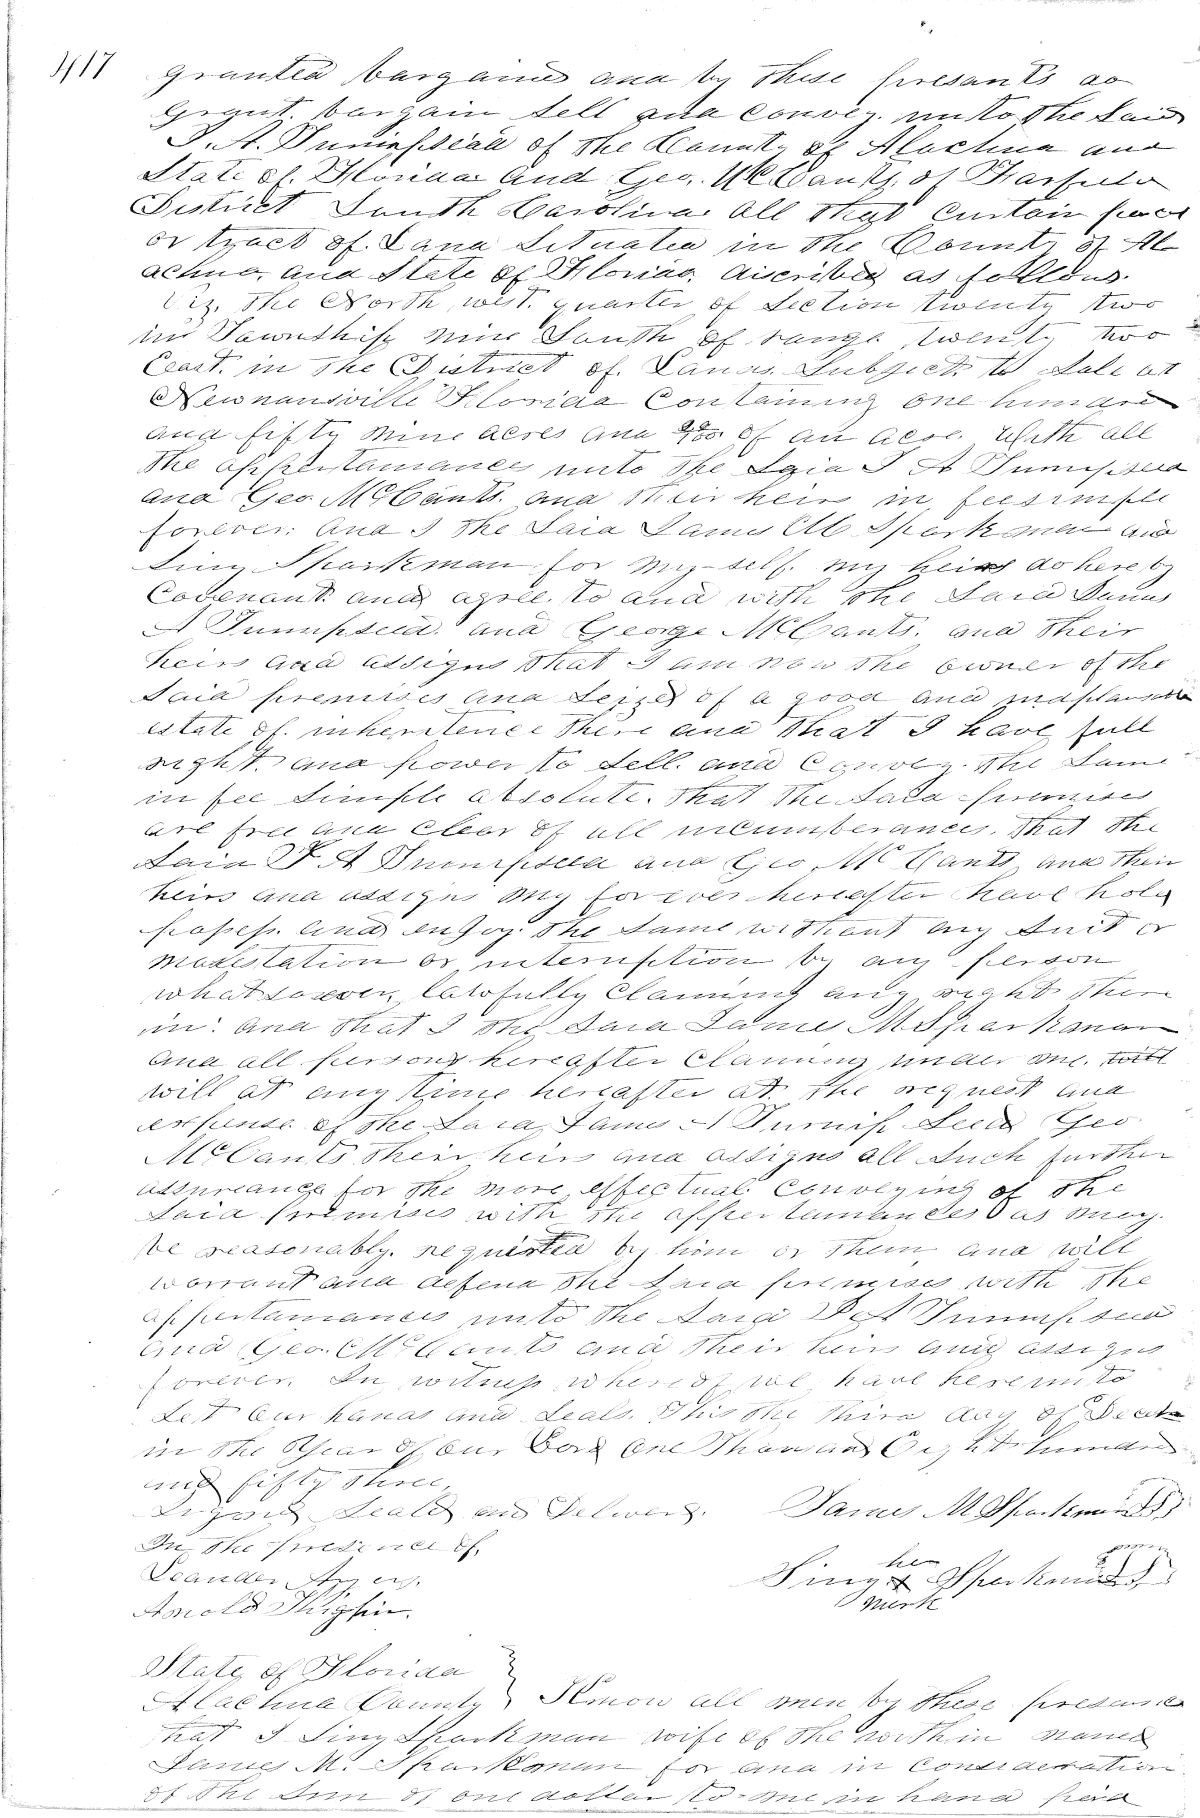 417
granted bargained and by these presants do
grant. bargain sell and convey. unto the said
J. A. Turnipseed of the County of Alachua and
State of. Florida and Geo. McCants. of Fairfield
District South Carolina all that certain piece
or tract of. Land Situated in the County of Al
achua. and State of Florida. discribed as follows.
Viz. The North west. quarter of Section twenty two
in Township nine South of range twenty two
East. in the District of. Lands Subject to Sale at
Newnansville Florida Containing one hundred
and fifty nine acres and /100 of an acre. With all
the appertainances unto the said J A Turnipseed
and Geo. McCants. and their heirs in feesimple
forever. And I the said James M Sparkman and
Sing Sparkman for my-self. my heirs do hereby
Covenant. and agree. to and with the said James
A Turnipseed. and George McCants. and their
heirs and assigns that I am now the owner of the
said premises and seized of a good and
estate of. inheritence there and that I have full
right. and power to sell. and convey. the same
in fee simple absolute. that the said premises
are free and clear of all incumberances. that the
said J. A Turnipseed and Geo McCants and their
heirs and assigns may forever hereafter have hold
posess. and enjoy. the same without any suit or
molestation or interruption by any person
whatsoever, lawfully claiming any right there
in: and that I the said James M Sparkman
and all persons hereafter claiming under me. will
will at any time hereafter at the request and
expense of the said James A Turnip Seed Geo
McCants their heirs and assigns all such further
assureance for the more effectual conveying of the
said premises with the appertainances as may.
be reasonably. requisted by him or them and will
warrant and defend the said premises with the
appertainances unto the said J A Turnipseed
and Geo. McCants and their heirs and assigns
forever. In witness whereof we have hereunto
set our hands and seals. This the third day of
in the Year of our Lord one Thousand Eight hundred
and fifty three
Signed Seald and Deliverd. James M Sparkman
In the presence of.
her
Leander
Sing X Sparkman
mark
Arnold
State of Florida
Alachua County Know all men by these presance
that I Sing Sparkman wife of the within named
James M. Sparkman for and in consideration
of the sum of one dollar to me in hand paid